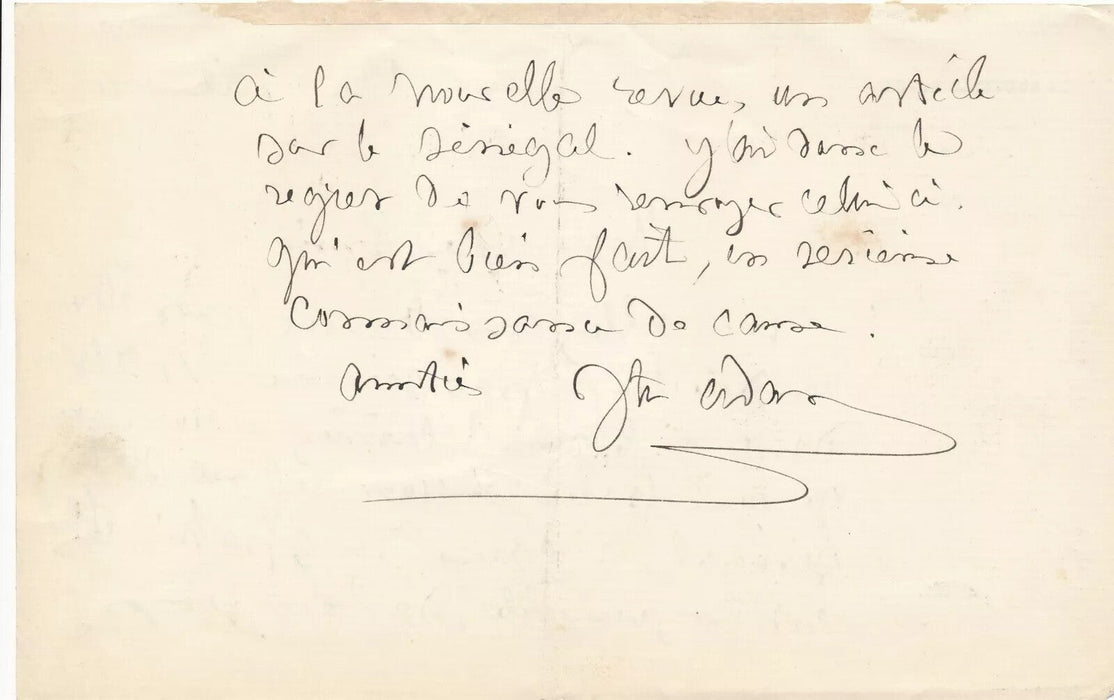 à la nouvelle revue, un article
sur le Sénégal. J'ai donc le
regret de vous renvoyer celui ci.
qui est bien fait, en sérieuse
connaissance de cause.
amitiés Jte adam